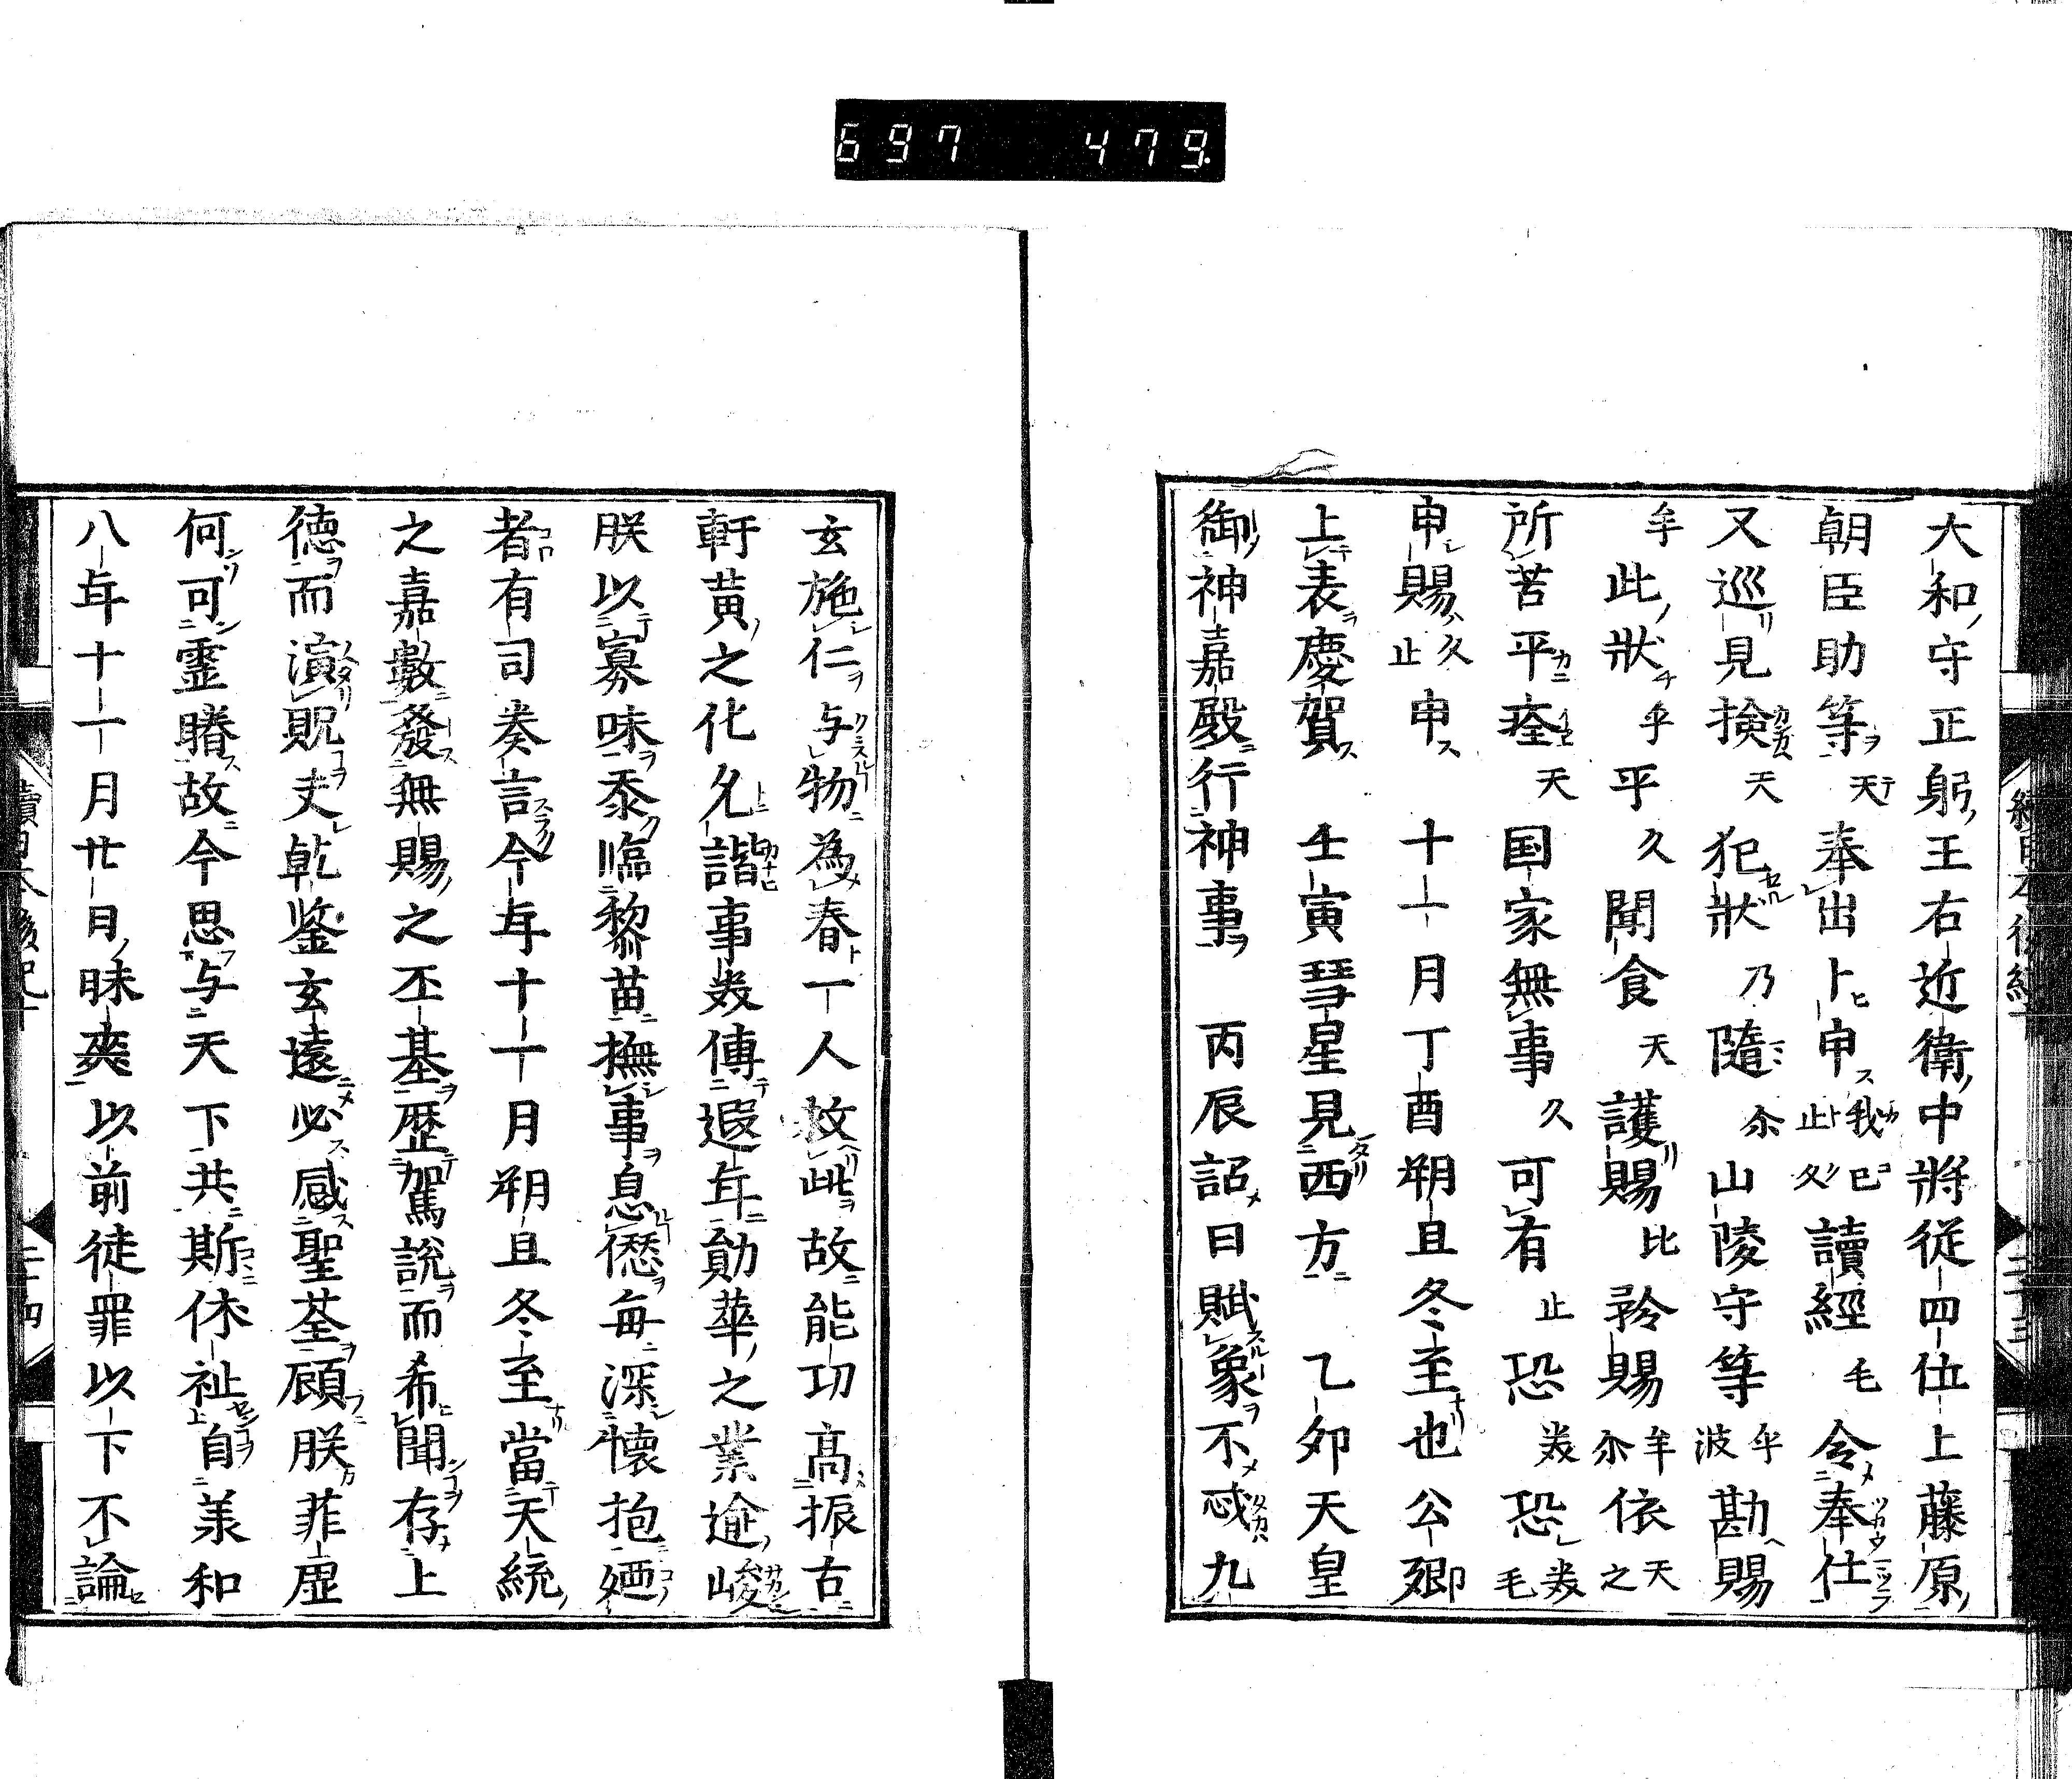 697 479.
大和守正躬王右近衛中將従四位上藤原
朝臣助等天奉出卜申我止己久讀經毛令奉仕
又巡見撿天犯狀乃隨尓山陵守等乎波勘賜
牟此狀乎平久聞食天護賜比矜賜牟尓依天之
所苦平痊天国家無事久可有止恐美恐美毛
申賜久止申十一月丁酉朔旦冬至也公卿
上表慶賀壬寅彗星見西方乙夘天皇
御神嘉殿行神事丙辰詔曰賦象不忒九
玄施仁与物為春一人救此故能功髙振古
軒黃之化允諧事美傳遐年勛華之業逾峻
朕以寡昧忝臨黎苗撫事息僁每深懷抱廼
者有司奏言今年十一月朔旦冬至當天統
之嘉數發無賜之丕基歷駕說而希聞存上
德而演貺夫乾鉴玄遠必感聖荃顧朕菲虛
何可靈賰故今思与天下共斯休祉自羕和
八年十一月廿日昧爽以前徒罪以下不論